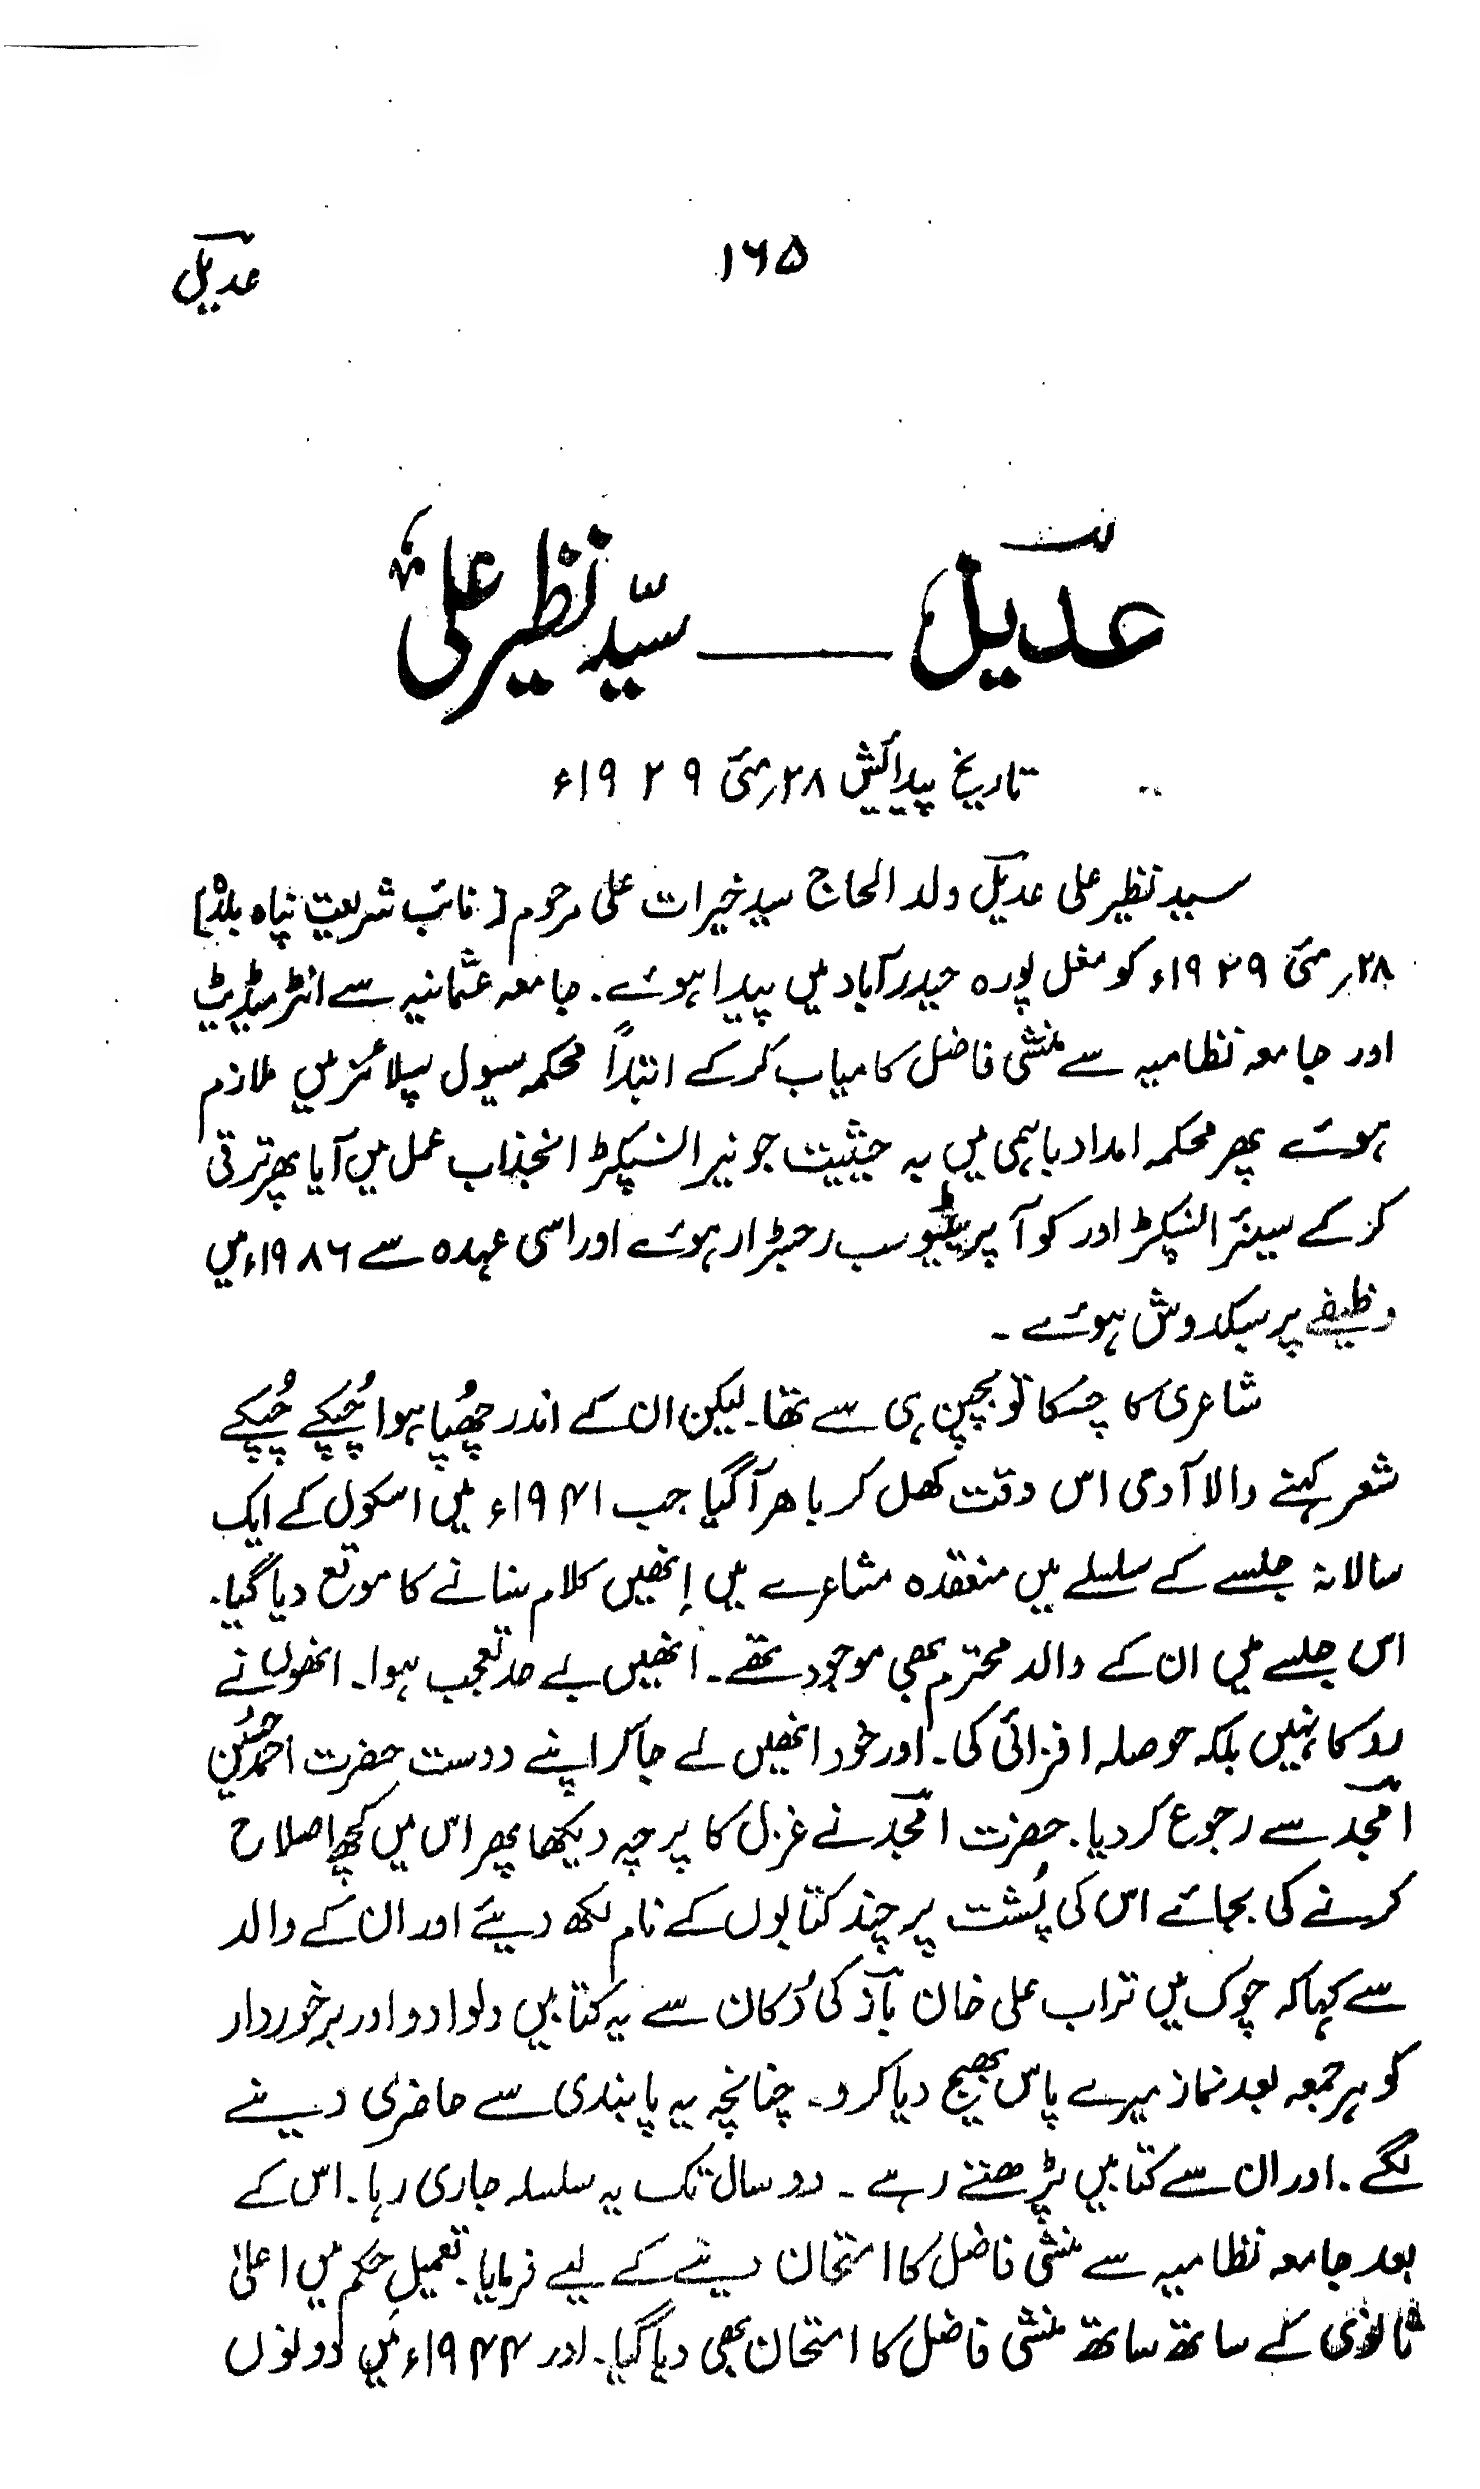 ۱۶۵
عدیل
عدیل ـــــ سیّد نظیر علی
تاریخ پیدائش ۲۸؍مئی ۱۹۲۹ء
سید نظیر علی عدیل ولد الحاج سید خیرات علی مرحوم [نائب شریعت پناہ بلدہ]
۲۸؍ مئی ۱۹۲۹ء کو مغل پورہ حیدرآباد میں پیدا ہوئے۔ جامعہ عثمانیہ سے انٹرمیڈیٹ
اور جامعہ نظامیہ سے منشی فاضل کامیاب کرکے ابتداً محکمہ سیول سپلائز میں ملازم
ہوئے پھر محکمہ امداد باہمی میں بہ حیثیت جونیر انسپکٹر انجذاب عمل میں آیا پھر ترقی
کرکے سینئر انسپکٹر اور کوآپریٹیو سب رجسٹرار ہوئے اور اسی عہدہ سے ۱۹۸۶ء میں
وظیفے پر سبکدوش ہوئے ۔
شاعری کا چسکا تو بچپن ہی سے تھا۔ لیکن ان کے اندر چھُپا ہوا چُپکے چُپکے
شعر کہنے والا آدمی اس وقت کھل کر باہر آگیا جب ۱۹۴۱ء میں اسکول کے ایک
سالانہ جلسے کے سلسلے میں منعقدہ مشاعرے میں اِنھیں کلام سنانے کا موقع دیا گیا۔
اس جلسے میں ان کے والد محترم بھی موجود تھے ۔ انھیں بے حد تعجب ہوا۔ انھوں نے
روکا نہیں بلکہ حوصلہ افزائی کی۔ اور خود انھیں لے جاکر اپنے دوست حضرت احمد حُسین
امجد سے رجوع کردیا۔ حضرت امجد نے غزل کا پرچہ دیکھا پھر اس میں کچھ اصلاح
کرنے کی بجائے اس کی پُشت پر چند کتابوں کے نام لکھ دیئے اور ان کے والد
سے کہا کہ چوک میں تراب علی خان باز کی دُکان سے یہ کتابیں دلوادو اور برخوردار
کو ہر جمعہ بعد نماز میرے پاس بھیج دیا کرو۔ چنانچہ یہ پابندی سے حاضری دینے
لگے ۔ اور ان سے کتابیں پڑھتے رہے ۔ دو سال تک یہ سلسلہ جاری رہا۔ اس کے
بعد جامعہ نظامیہ سے منشی فاضل کا امتحان دینے کے لیے فرمایا۔ تعمیلِ حکم میں اعلیٰ
ثانوی کے ساتھ ساتھ منشی فاضل کا امتحان بھی دیا گیا۔ اور ۱۹۴۴ء میں دونوں